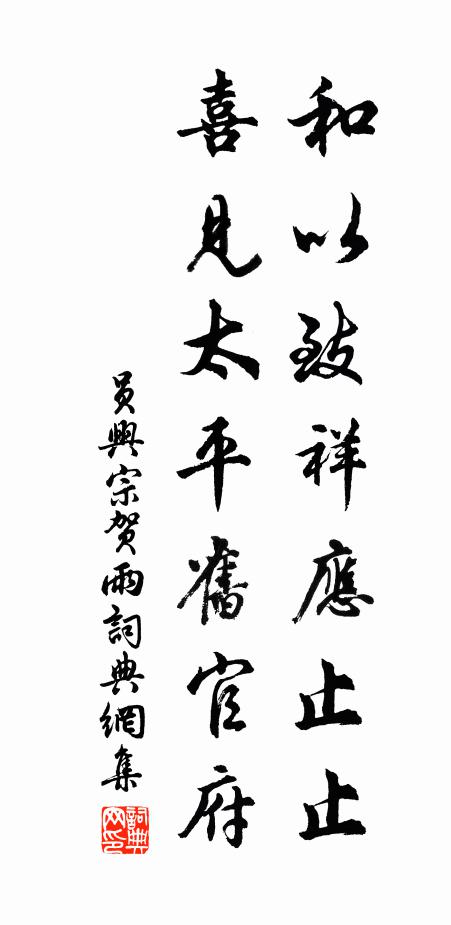 和以致祥應止止
喜見太平舊官府
员興宗贺雨詞典網集
詞典网印